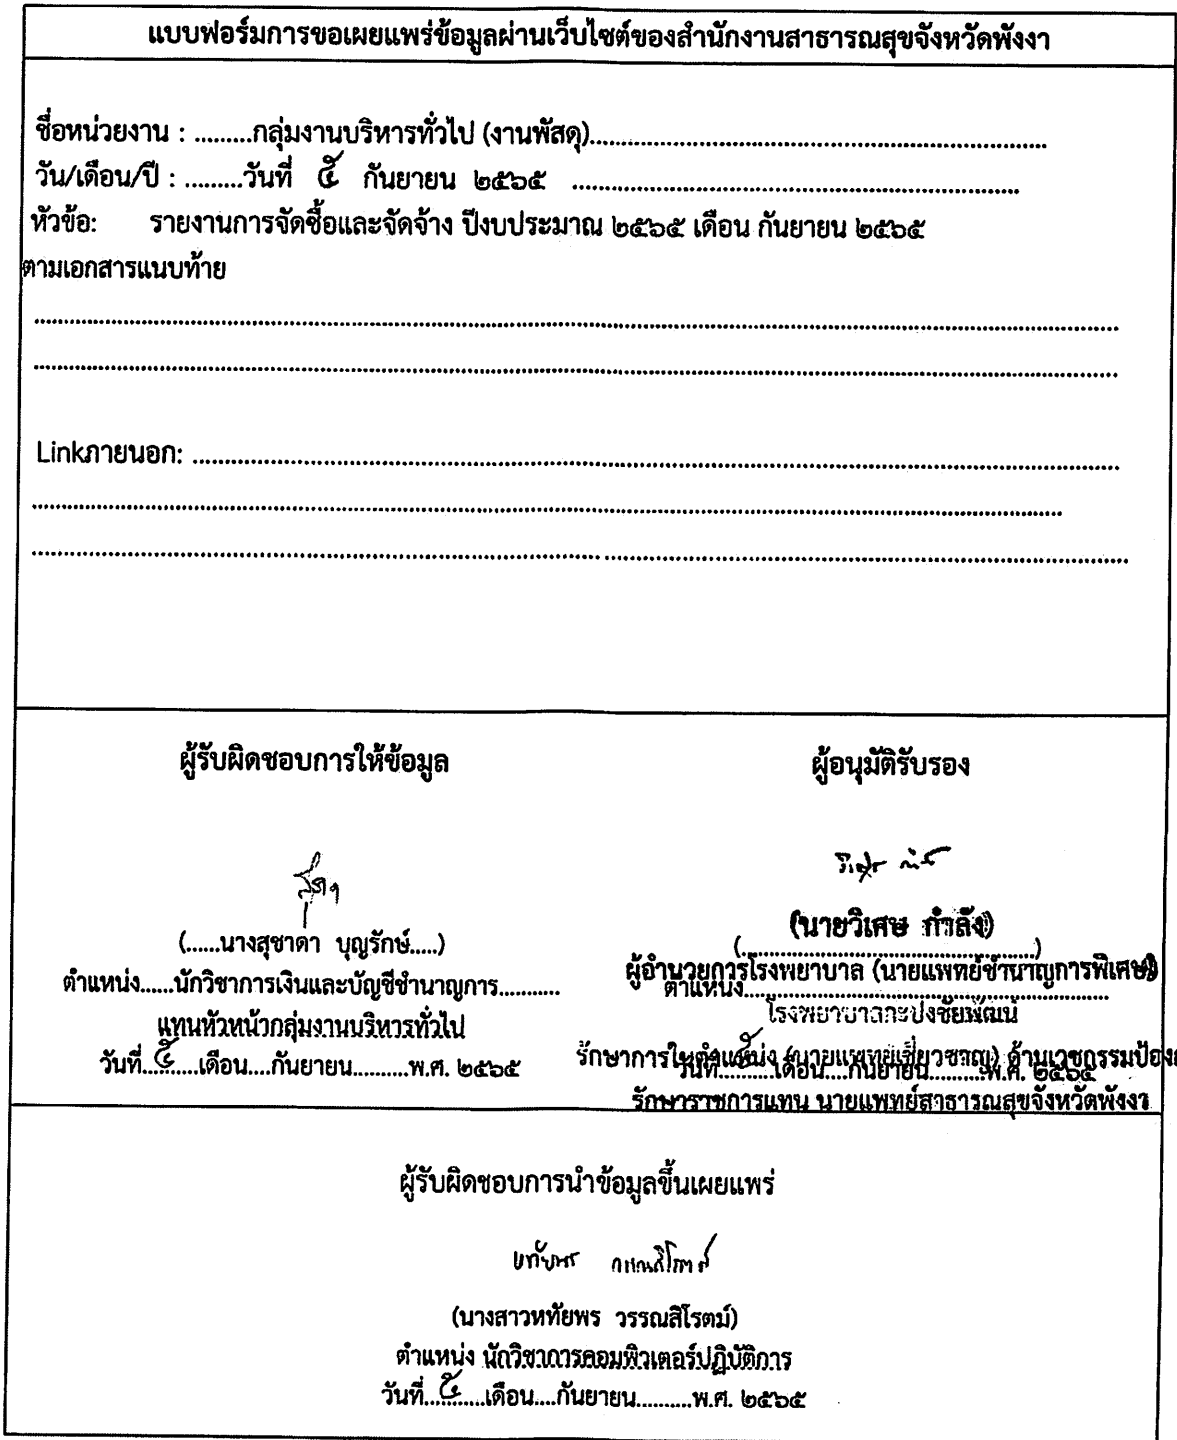 แบบฟอร์มการขอเผยแพร่ข้อมูลผ่านเว็บไซต์ของสำนักงานสาธารณสุขจังหวัดพังงา
ชื่อหน่วยงาน : .........กลุ่มงานบริหารทั่วไป (งานพัสดุ)..........
วัน/เดือน/ปี : .........วันที่ ๕ กันยายน ๒๕๖๕ ..........
หัวข้อ: รายงานการจัดซื้อและจัดจ้าง ปีงบประมาณ ๒๕๖๕ เดือน กันยายน ๒๕๖๕
ตามเอกสารแนบท้าย
Linkภายนอก: ..........
ผู้รับผิดชอบการให้ข้อมูล
(......นางสุชาดา บุญรักษ์.....)
ตำแหน่ง......นักวิชาการเงินและบัญชีชำนาญการ...........
แทนหัวหน้ากลุ่มงานบริหารทั่วไป
วันที่..๕..เดือน....กันยายน..........พ.ศ. ๒๕๖๕
ผู้อนุมัติรับรอง
(นายวิเศษ กำลัง)
ผู้อำนวยการโรงพยาบาล (นายแพทย์ชำนาญการพิเศษ)
ตำแหน่ง..........
โรงพยาบาลกะปงชัยพัฒน์
รักษาการในตำแหน่ง (นายแพทย์เชี่ยวชาญ) ด้านเวชกรรมป้อง
วันที่..๕..เดือน....กันยายน..........พ.ศ. ๒๕๖๕
รักษาราชการแทน นายแพทย์สาธารณสุขจังหวัดพังงา
ผู้รับผิดชอบการนำข้อมูลขึ้นเผยแพร่
หทัยพร วรรณสิโรตม์
(นางสาวหทัยพร วรรณสิโรตม์)
ตำแหน่ง นักวิชาการคอมพิวเตอร์ปฏิบัติการ
วันที่..๕..เดือน....กันยายน..........พ.ศ. ๒๕๖๕